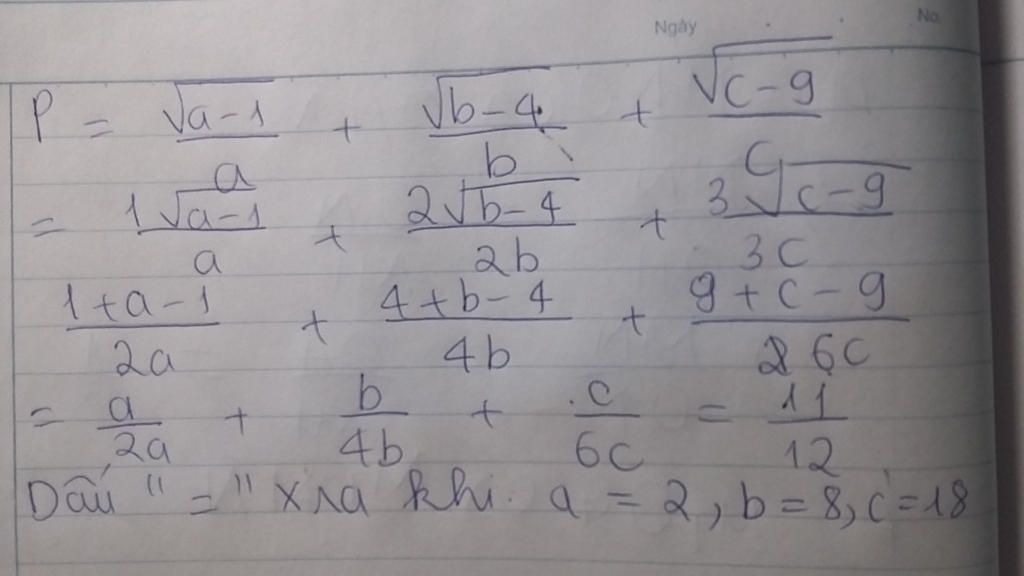 Ngày No
P = √(a-1)/a + √(b-4)/b + √(c-9)/c
= 1√(a-1)/a + 2√(b-4)/2b + 3√(c-9)/3c
(1+a-1)/2a + (4+b-4)/4b + (9+c-9)/6c
= a/2a + b/4b + c/6c = 11/12
Dấu "=" xra khi. a = 2, b = 8, c = 18